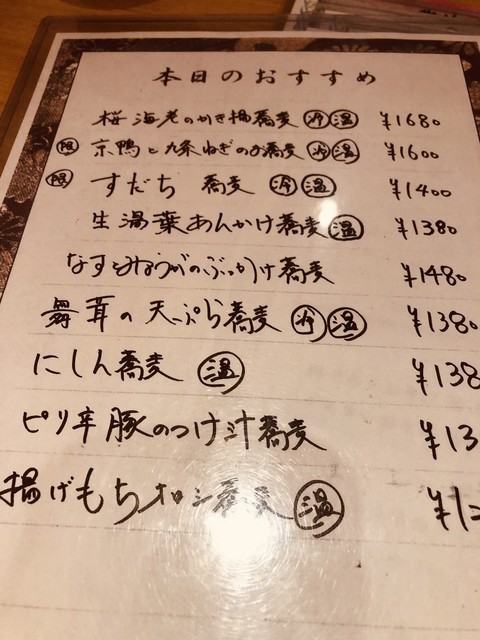 本日のおすすめ
桜海老のかき揚蕎麦 冷 温 ¥1680
限 京鴨と九条ねぎの蕎麦 冷 温 ¥1600
限 すだち 蕎麦 冷 温 ¥1400
生湯葉あんかけ蕎麦 温 ¥1380
なすとみょうがのぶっかけ蕎麦 ¥1480
舞茸の天ぷら蕎麦 冷 温 ¥1380
にしん蕎麦 温 ¥138
ピリ辛豚のつけ汁蕎麦 ¥13
揚げもちオロシ蕎麦 温 ¥1